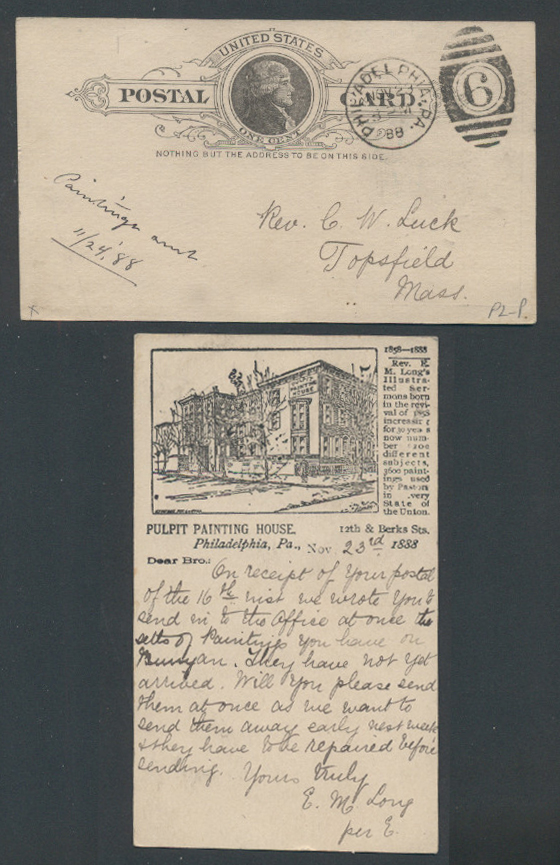 UNITED STATES
POSTAL CARD.
ONE CENT
NOTHING BUT THE ADDRESS TO BE ON THIS SIDE.
PHILADELPHIA, PA.
NOV 23
88
6
Paintings sent
11/24, '88
Rev. C. W. Luck
Topsfield
Mass.
x
P2-P.
1858—1888
Rev. E.
M. Long's
Illustra-
ted Ser-
mons born
in the revi-
val of 1858
increasing
for 30 years
now num-
ber 1200
different
subjects,
3600 paint-
ings used
by Pastors
in every
State of
the Union.
PULPIT PAINTING HOUSE.
12th & Berks Sts.
Philadelphia, Pa., Nov. 23rd 1888
Dear Bro.:
On receipt of Your postal
of the 16th inst we wrote You to
send in to the Office at once the
setts of Paintings You have on
Bunyan. They have not yet
arrived. Will You please send
them at once as we want to
send them away early next week
& they have to be repaired before
sending. Yours truly
E. M. Long
per E.